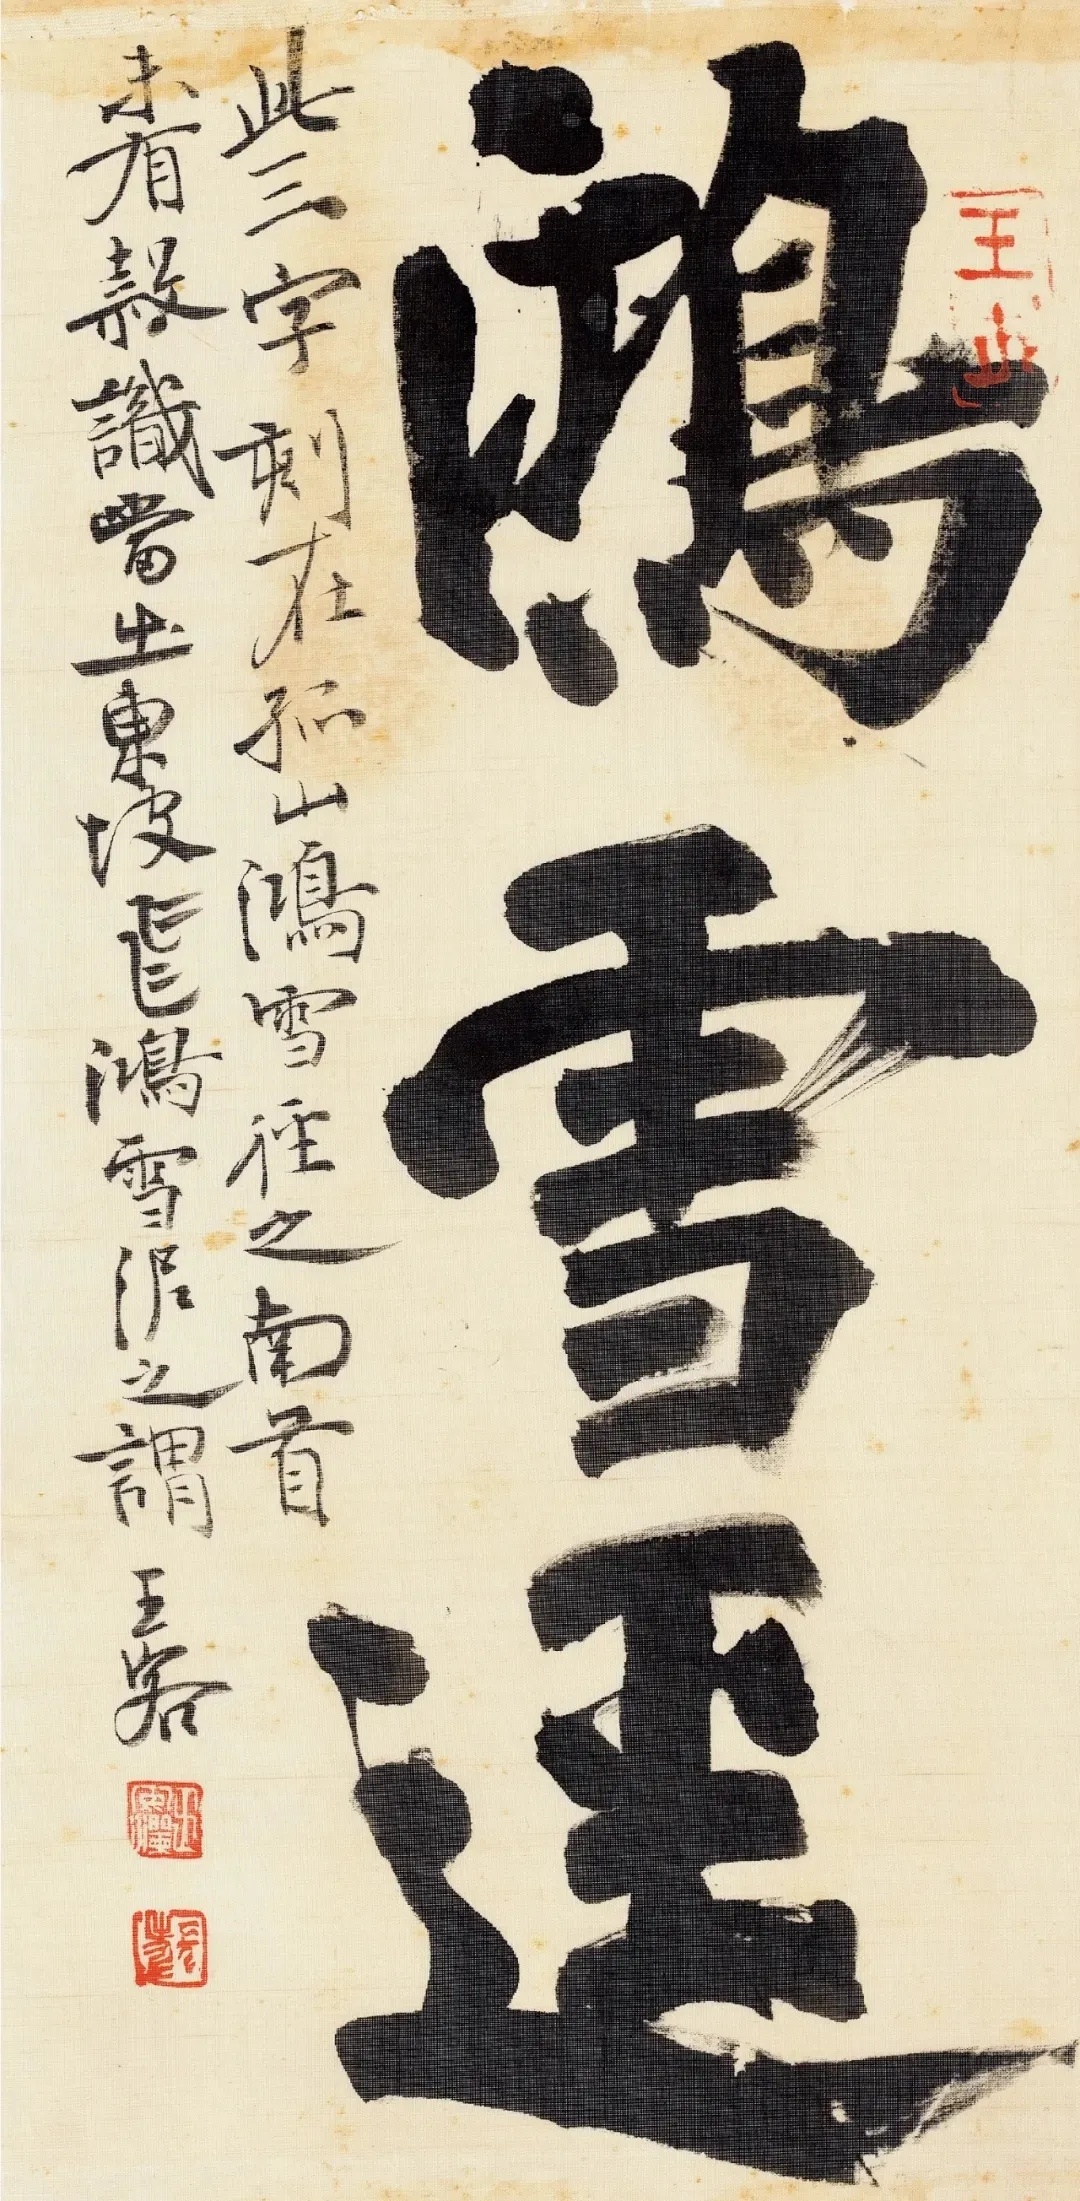 鴻雪逕
此三字刻在孤山鴻雪徑之南首
未有款識當出東坡飛鴻雪泥之謂
王客